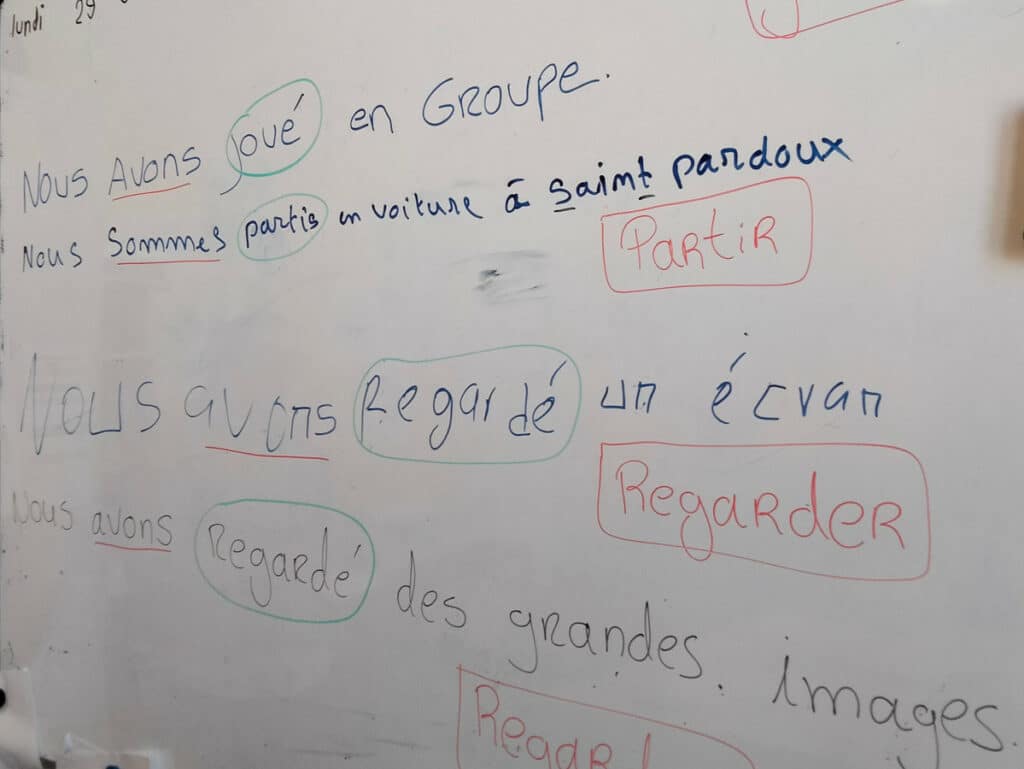 lundi 29
Nous Avons joué en Groupe.
Nous Sommes partis en voiture à Saint pardoux
Partir
Nous avons Regardé un écran
Regarder
Nous avons Regardé des grandes. images.